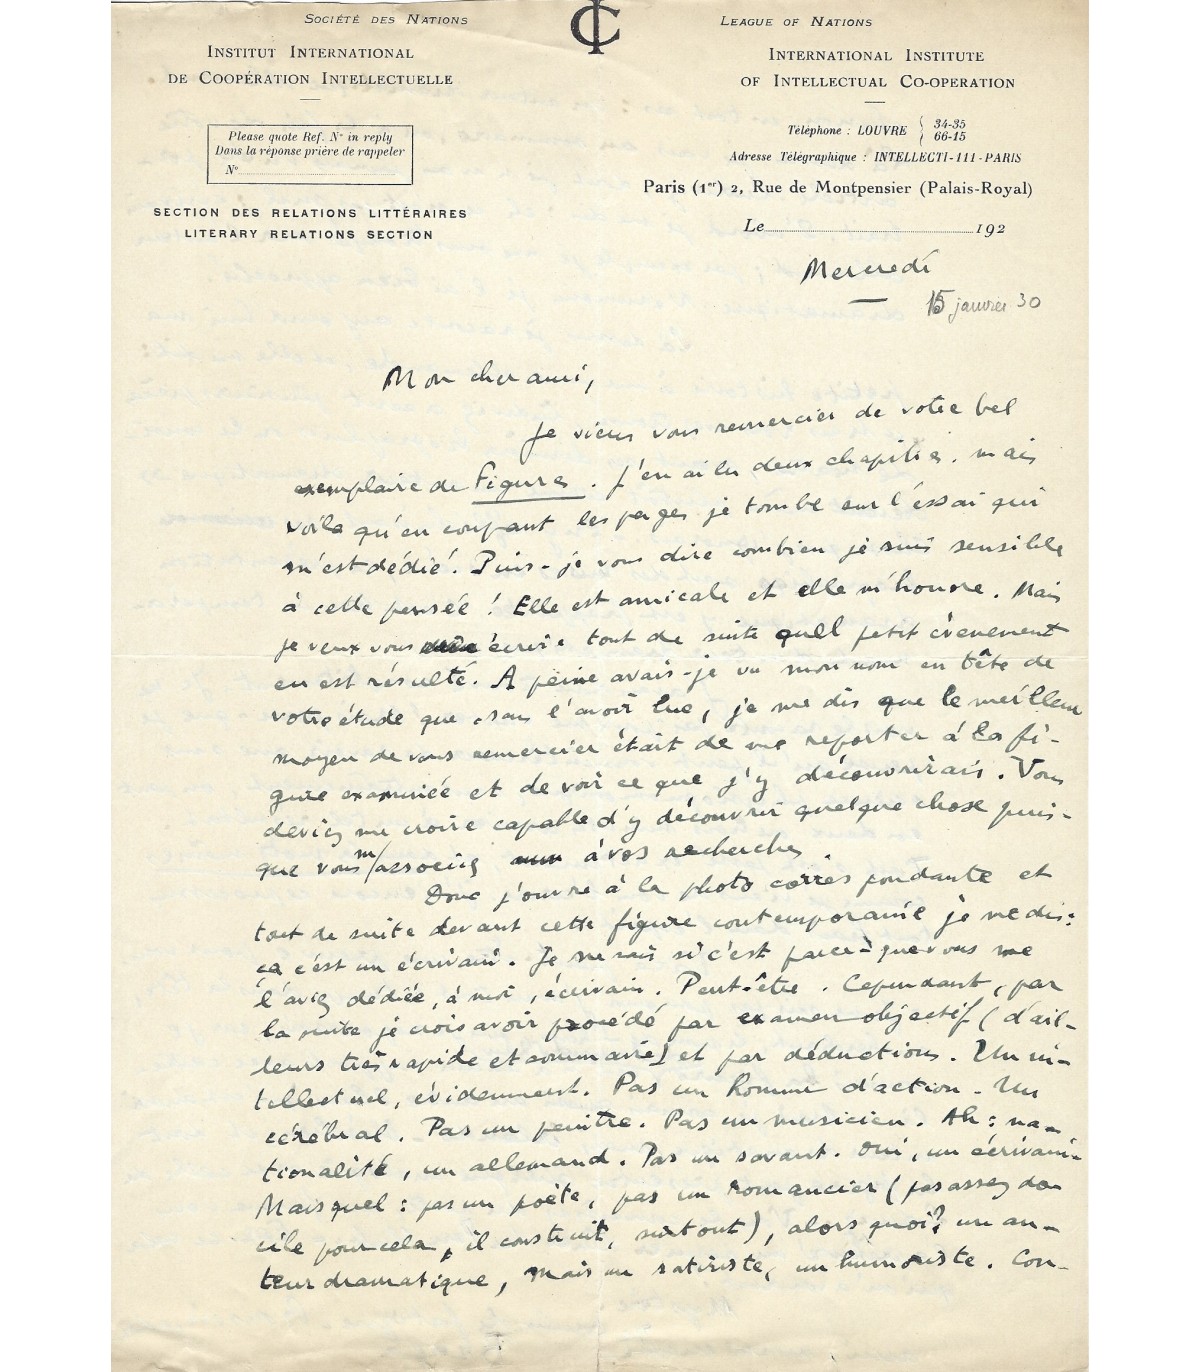 Société des Nations
Institut International
de Coopération Intellectuelle
Please quote Ref. No in reply
Dans la réponse prière de rappeler
No
SECTION DES RELATIONS LITTÉRAIRES
LITERARY RELATIONS SECTION
IC
League of Nations
International Institute
of Intellectual Co-operation
Téléphone : LOUVRE { 34-35
66-15
Adresse Télégraphique : INTELLECTI-111-PARIS
Paris (1er) 2, Rue de Montpensier (Palais-Royal)
Le 192
Mercredi
15 janvier 30
Mon cher ami,
Je viens vous remercier de votre bel
exemplaire de Figures. J'en ai lu deux chapitres. mais
voilà qu'en coupant les pages je tombe sur l'essai qui
m'est dédié. Puis-je vous dire combien je suis sensible
à cette pensée ! Elle est amicale et elle m'honore. Mais
je veux vous écrire tout de suite quel petit évènement
en est résulté. A peine avais-je vu mon nom en tête de
votre étude que, sans l'avoir lue, je me dis que le meilleur
moyen de vous remercier était de me reporter à la fi-
gure examinée et de voir ce que j'y découvrirais. Vous
deviez me croire capable d'y découvrir quelque chose puis-
que vous m'associez à vos recherches.
Donc j'ouvre à la photo correspondante et
tout de suite devant cette figure contemporaine je me dis :
ça c'est un écrivain. Je ne sais si c'est parce-que vous me
l'aviez dédiée, à moi, écrivain. Peut-être. Cependant, par
la suite je crois avoir procédé par examen objectif (d'ail-
leurs très rapide et sommaire) et par déductions. Un in-
tellectuel, évidemment. Pas un homme d'action. Un
cérébral. Pas un peintre. Pas un musicien. Ah : na-
tionalité, un allemand. Pas un savant. Oui, un écrivain.
Mais quel : pas un poète, pas un romancier (pas assez do-
cile pour cela, il construit, surtout), alors quoi? un au-
teur dramatique, mais un satiriste, un humoriste. Con-